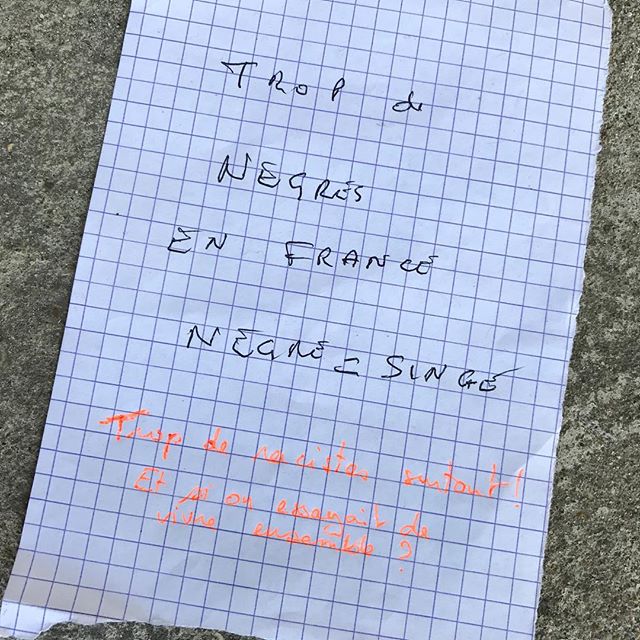 TROP de
NEGRES
EN FRANCE
NEGRE = SINGE
Trop de racistes surtout !
Et si on essayait de
vivre ensemble ?